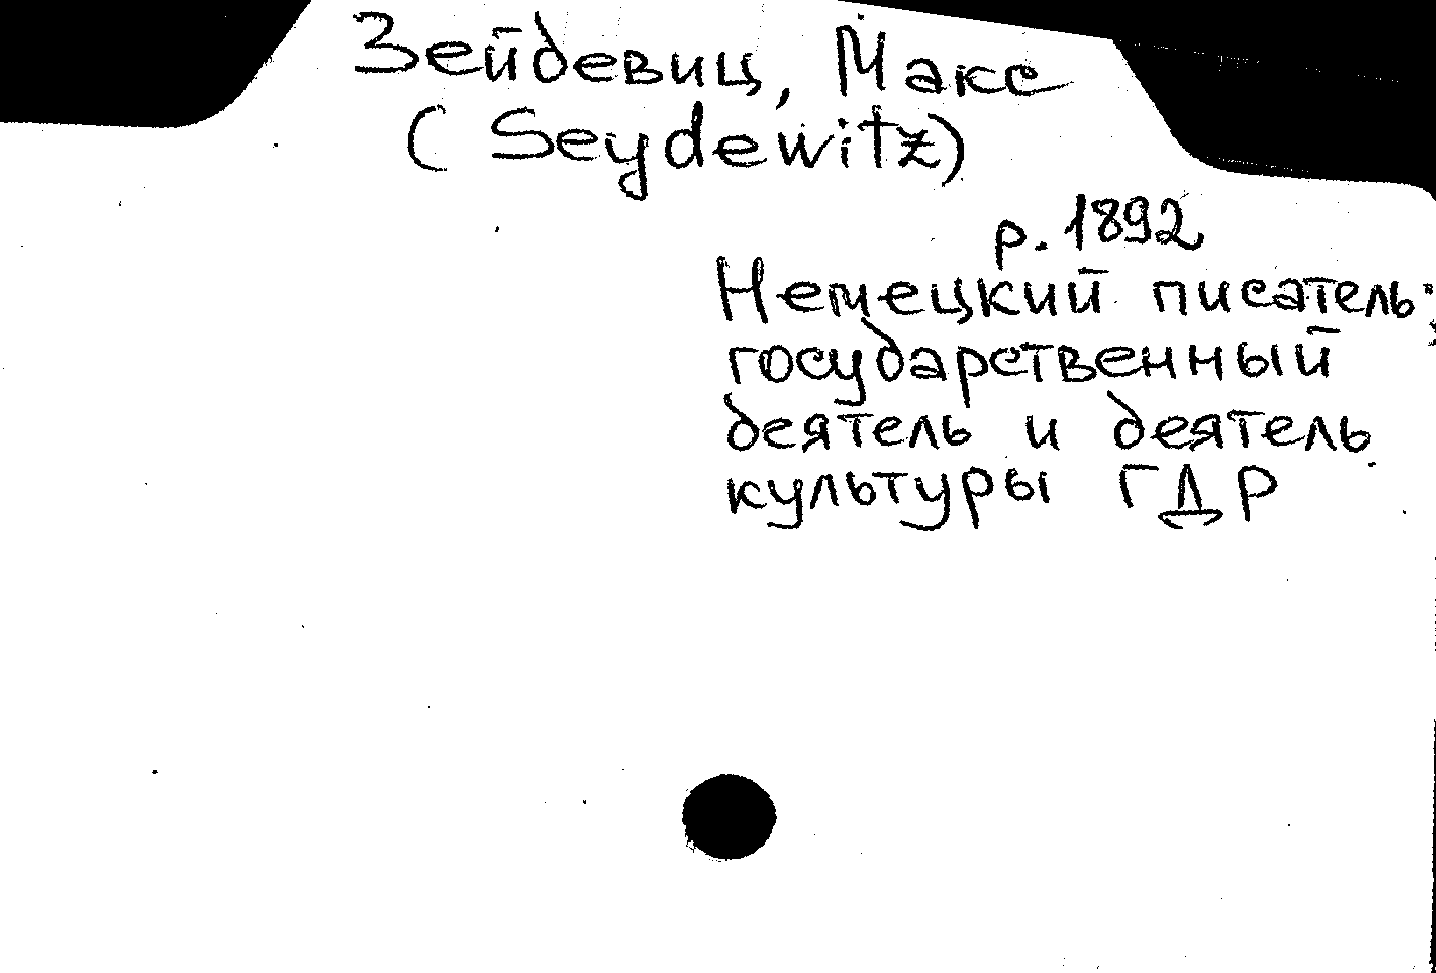 Зейдевиц, Макс
(Seydewitz)
р. 1892
Немецкий писатель;
государственный
деятель и деятель
культуры ГДР